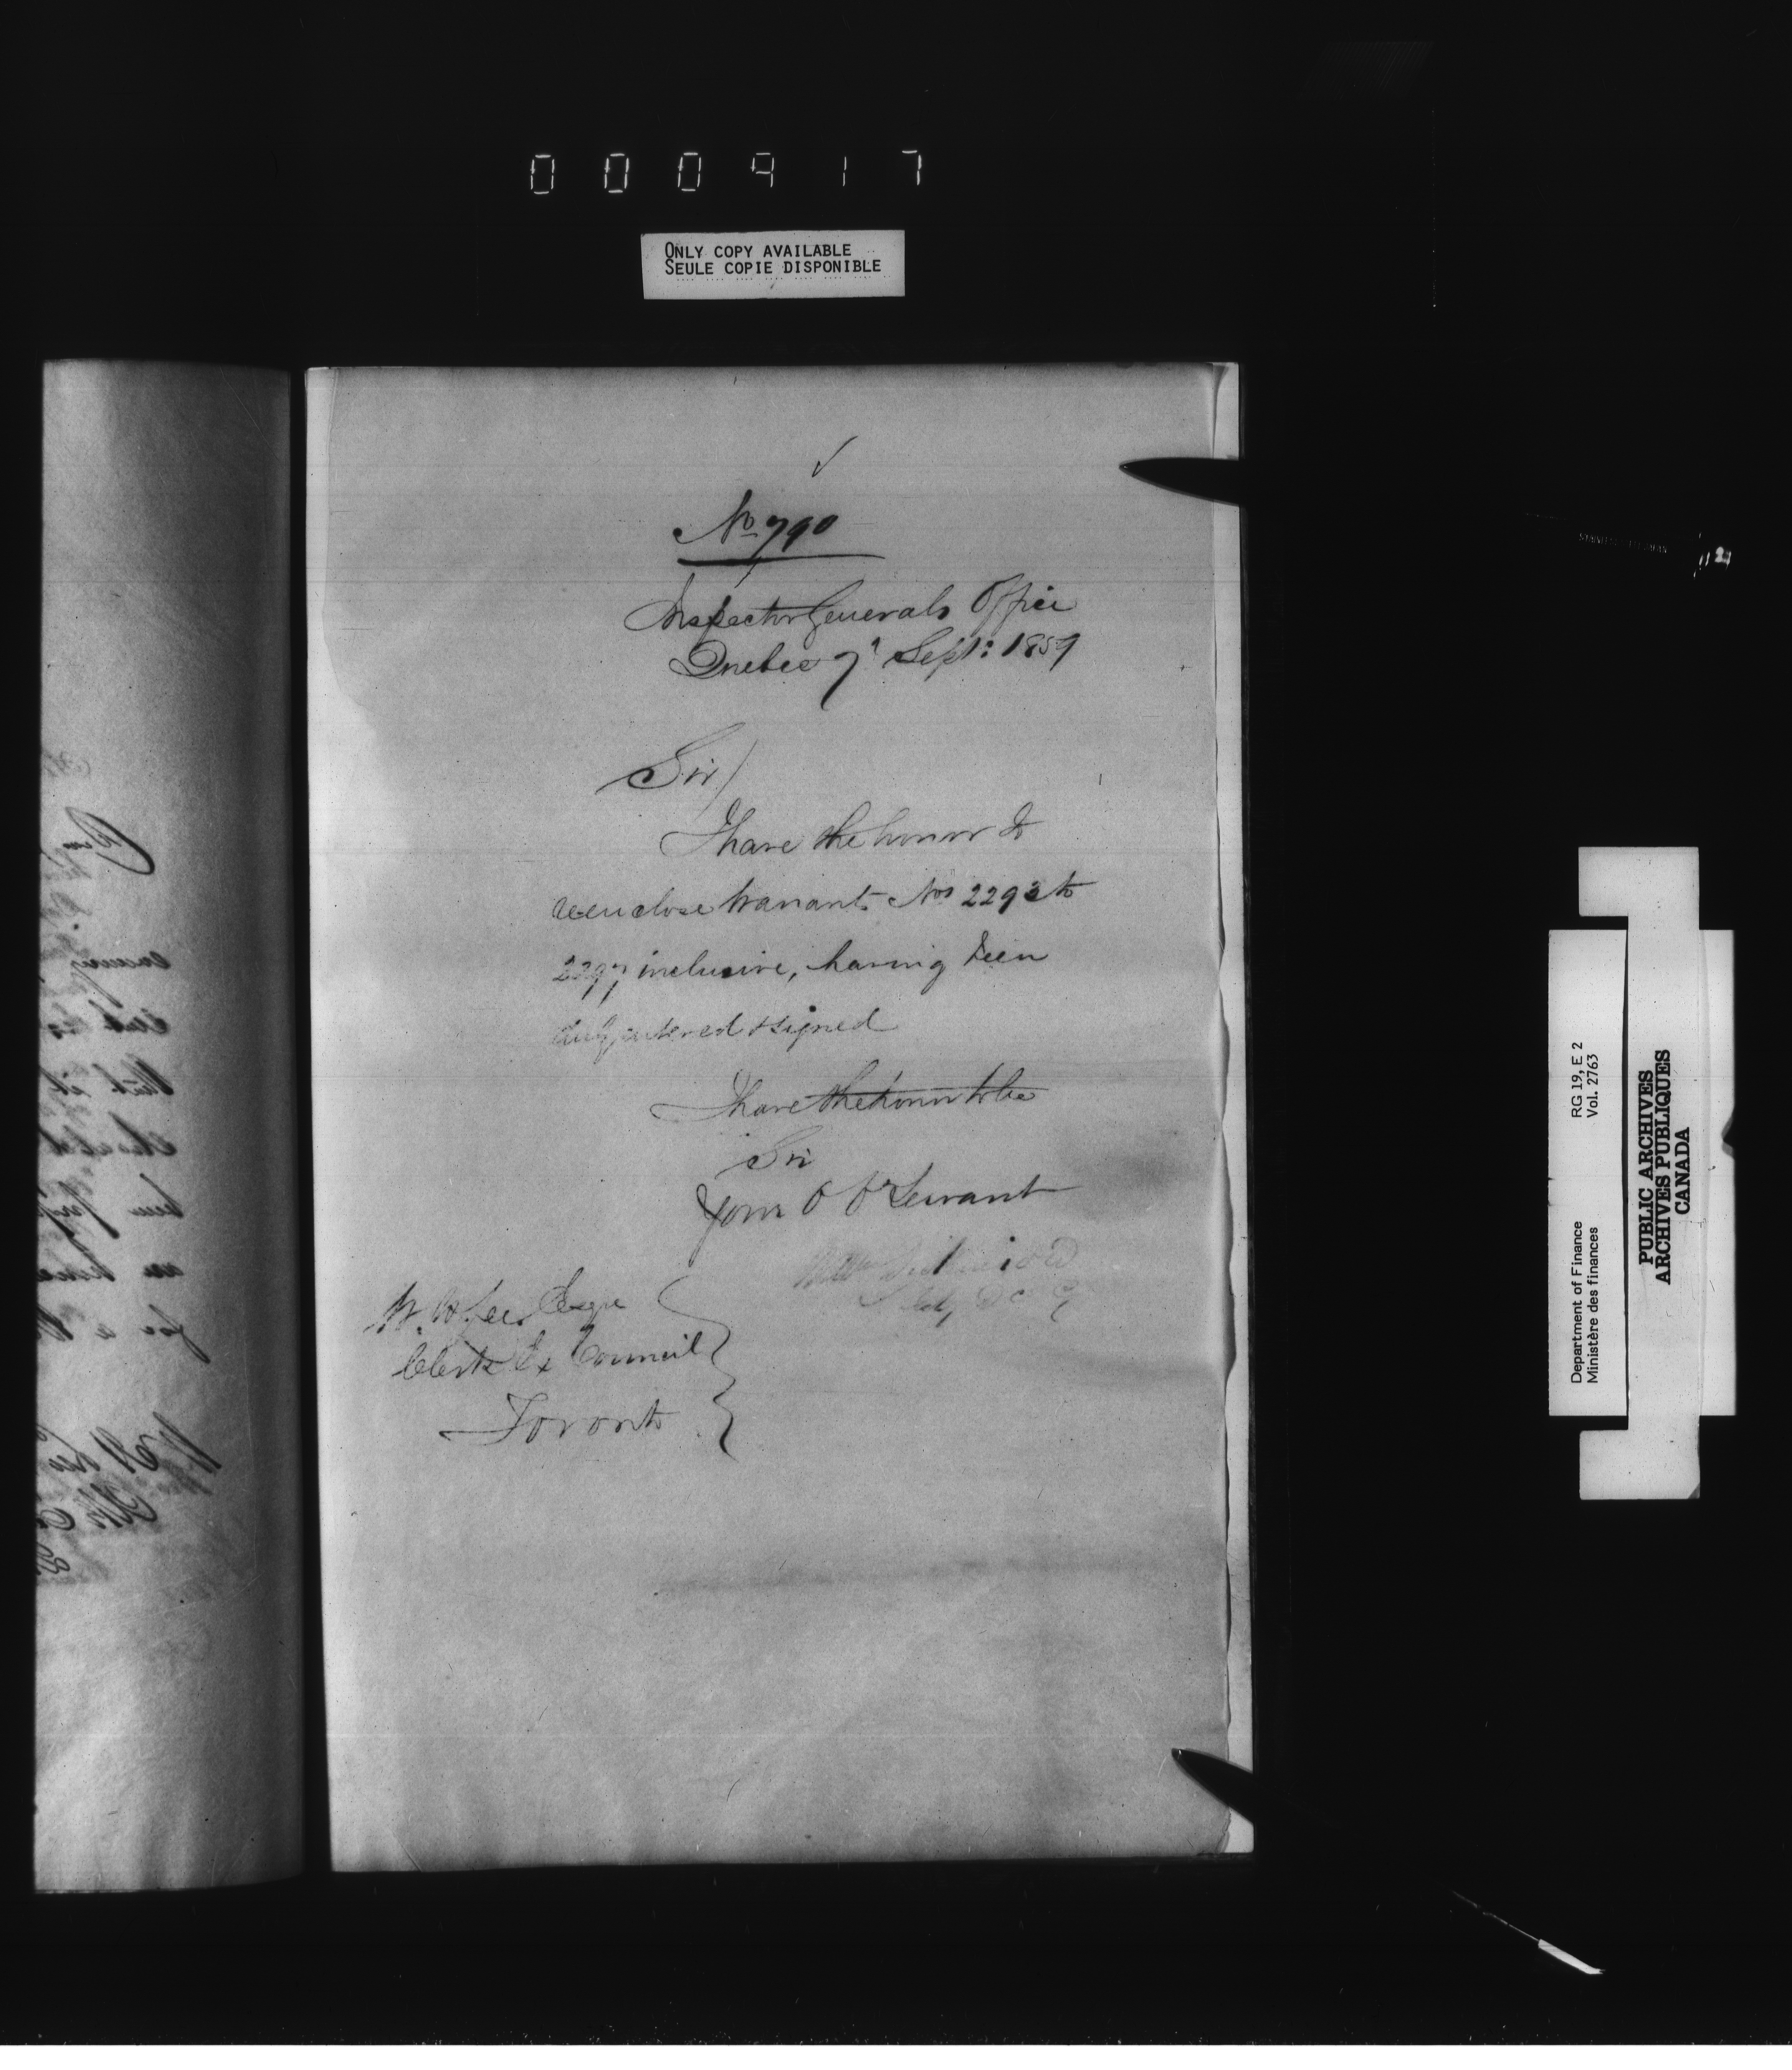 000917
ONLY COPY AVAILABLE
SEULE COPIE DISPONIBLE
No 790
Inspector Generals Office
Quebec 7th Sept: 1859
Sir/
I have the honor to
enclose Warrants Nos 2293 to
2297 inclusive, having been
duly entered & signed
I have the honor to be
Sir
Your O Ot Servant
W. H. Lee Esqre
Clerk Ex Council
Toronto
RG 19, E 2
Vol. 2763
Department of Finance
Ministère des finances
PUBLIC ARCHIVES
ARCHIVES PUBLIQUES
CANADA